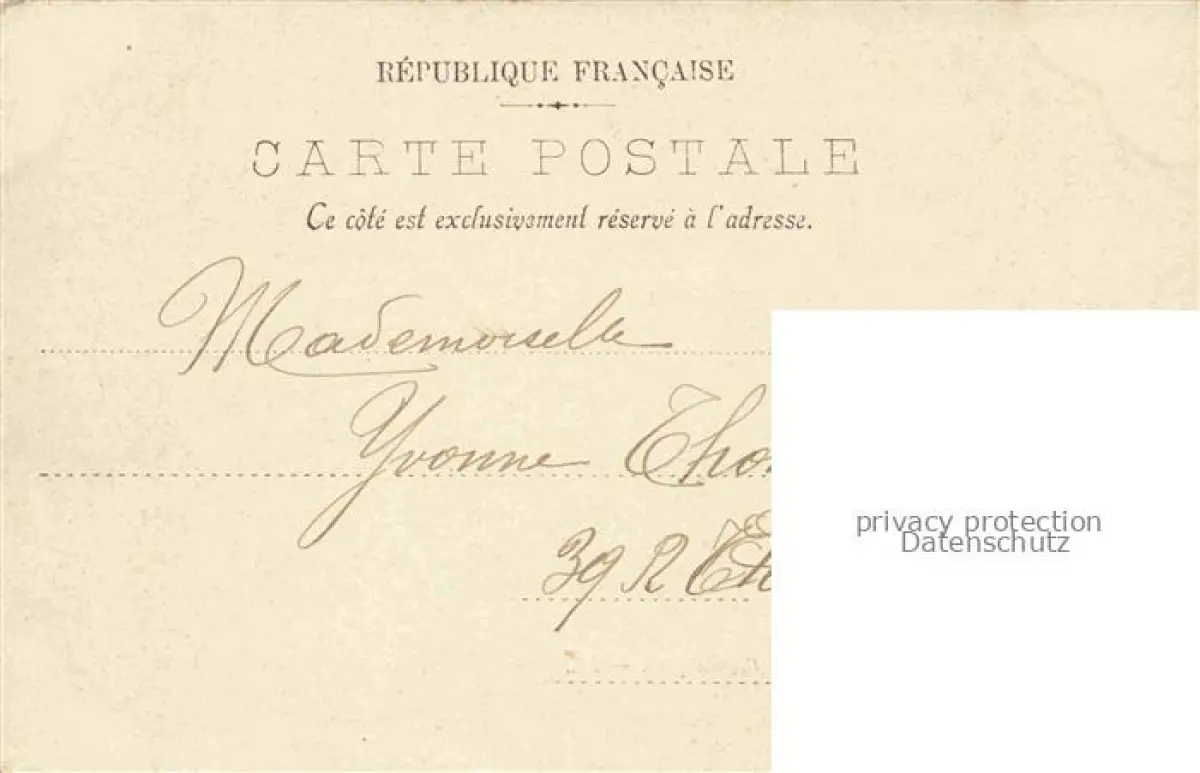 RÉPUBLIQUE FRANÇAISE
CARTE POSTALE
Ce côté est exclusivement réservé à l'adresse.
Mademoiselle
Yvonne Tho
39 R
privacy protection
Datenschutz